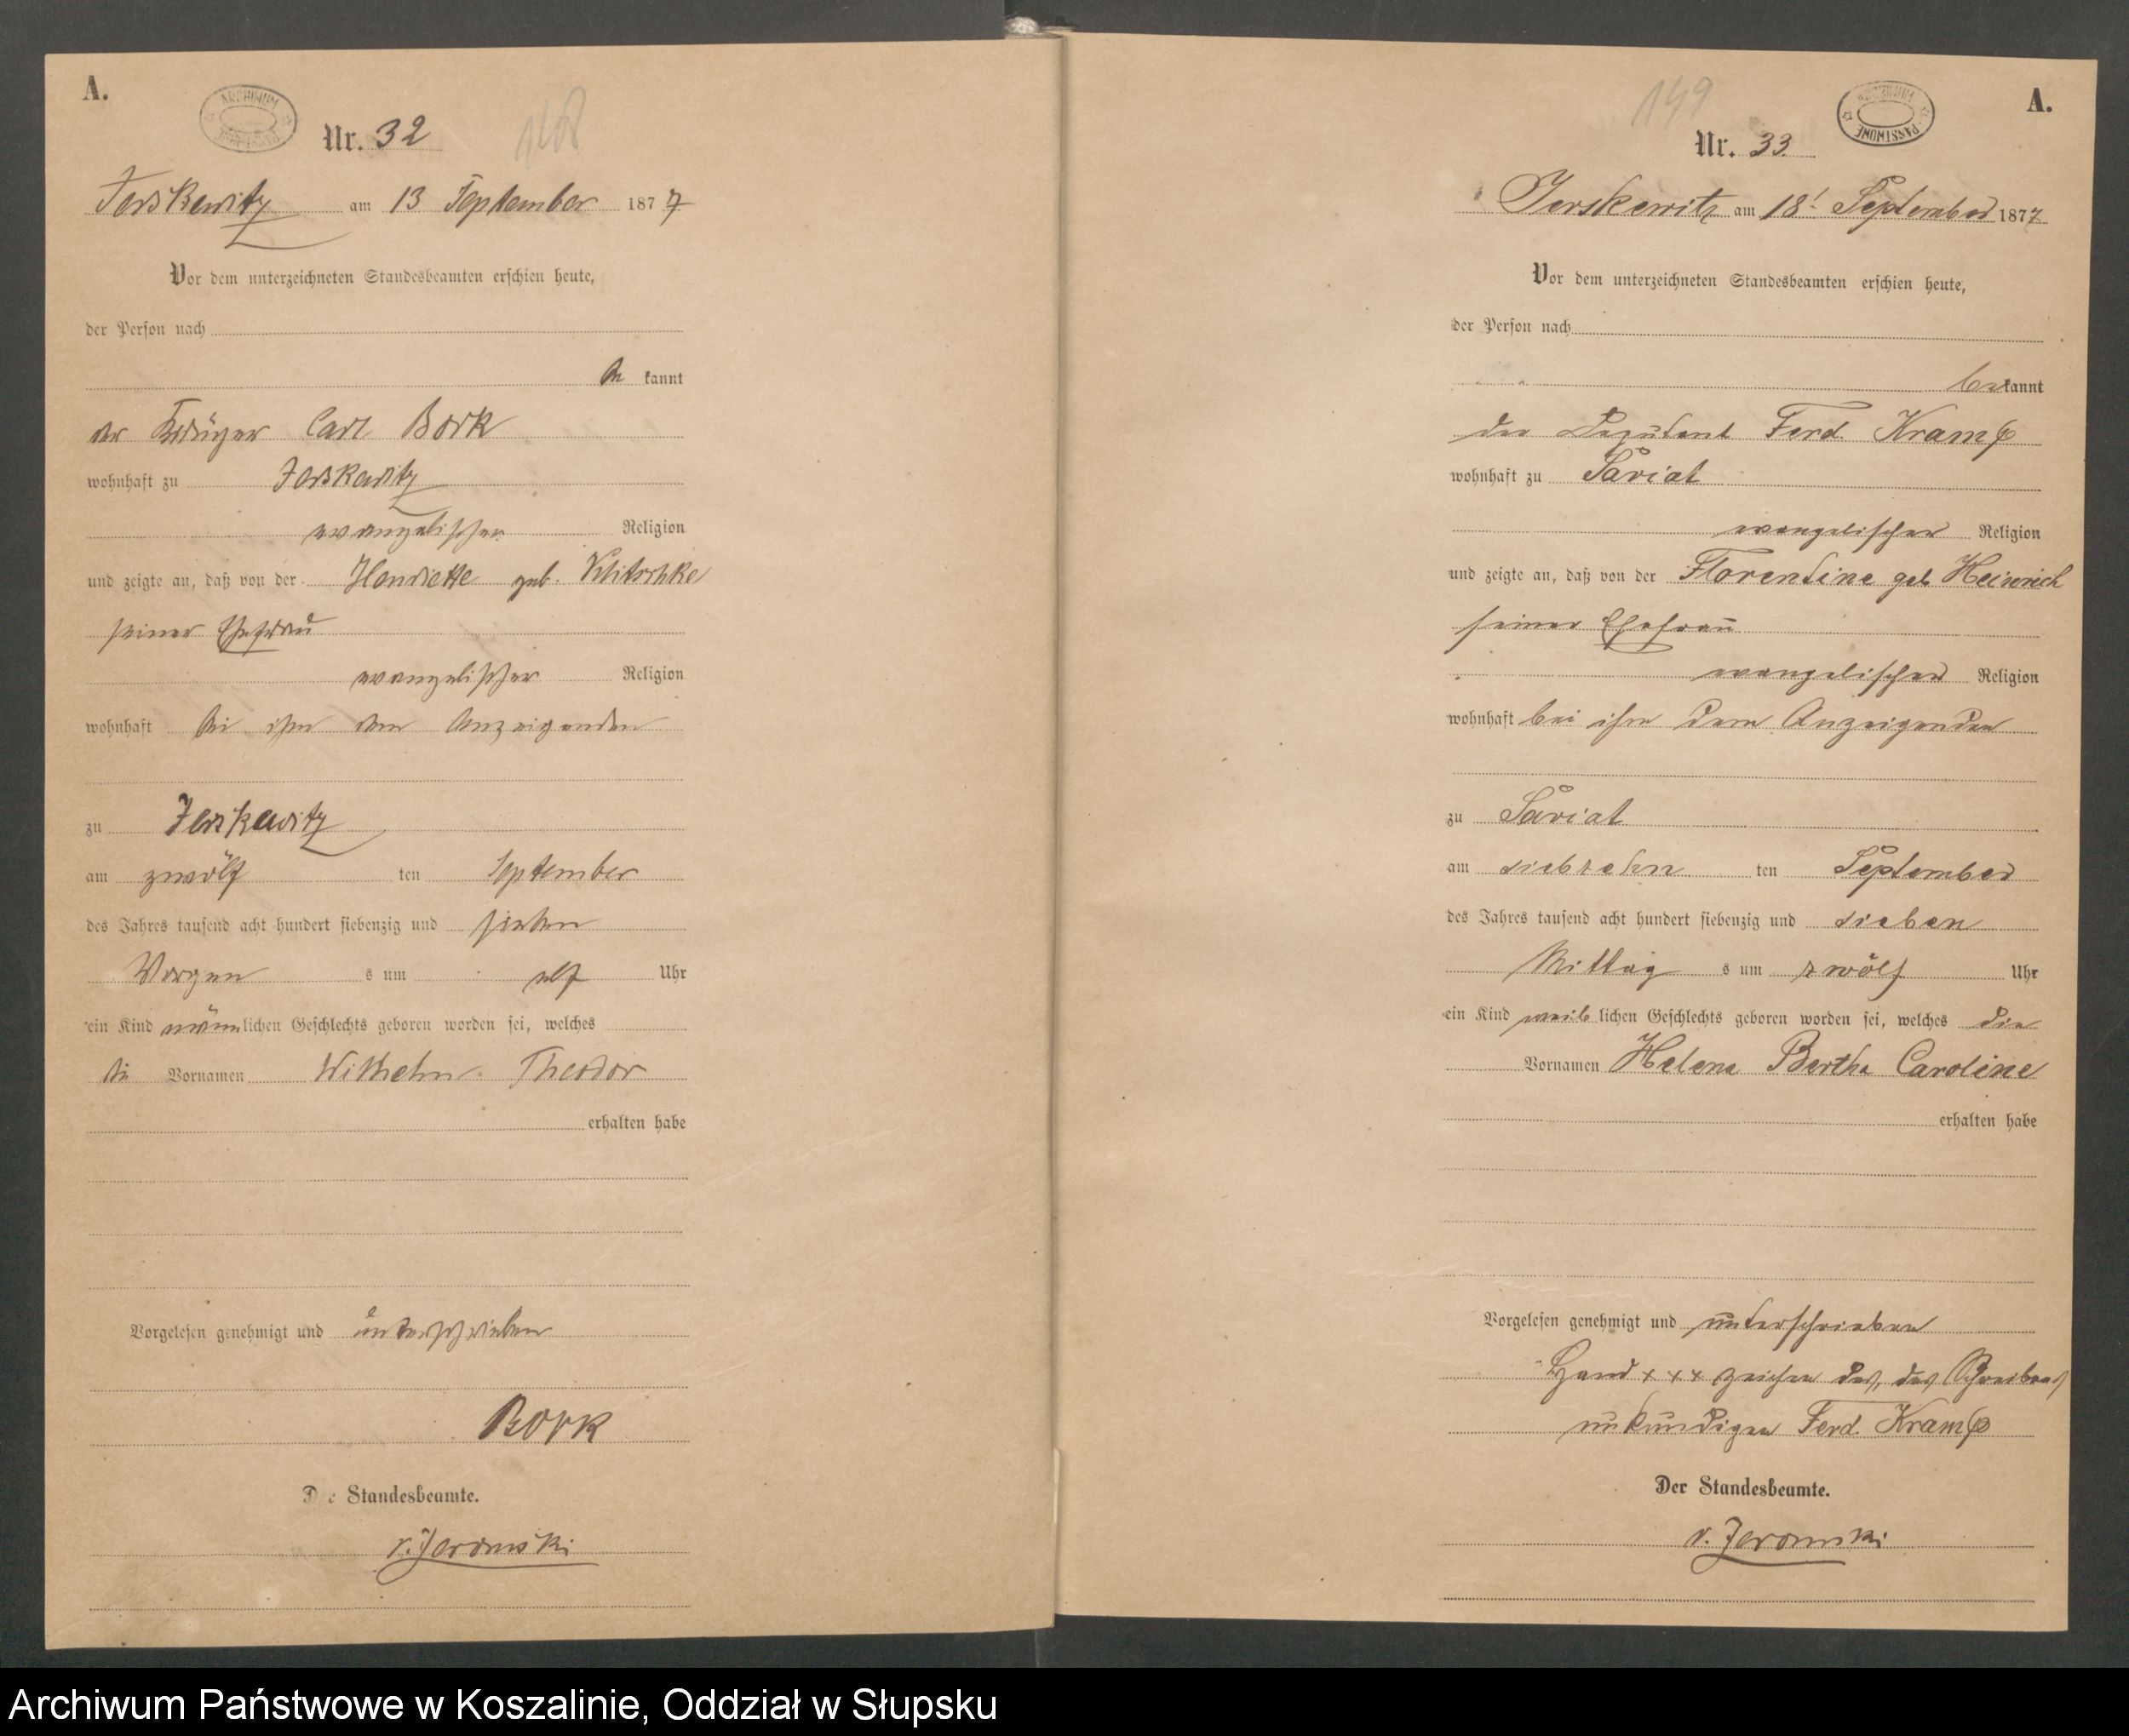 A.
ARCHIWUM
Nr. 32
148
Jerskewitz am 13 September 1877
Vor dem unterzeichneten Standesbeamten erschien heute,
der Person nach
be kannt
der Krüger Carl Bork
wohnhaft zu Jerskewitz
evangelischer Religion
und zeigte an, daß von der Henriette geb. Klitschke
seiner Ehefrau
evangelischer Religion
wohnhaft bei ihm dem Anzeigenden
zu Jerskewitz
am zwölf ten September
des Jahres tausend acht hundert siebenzig und sieben
Morgen s um elf Uhr
ein Kind männlichen Geschlechts geboren worden sei, welches
die Vornamen Wilhelm Theodor
erhalten habe
Vorgelesen genehmigt und unterschrieben
Bork
Der Standesbeamte.
v. Jeromski
149
A.
ARCHIWUM PAŃSTWOWE
Nr. 33.
Jerskewitz am 18t September 1877
Vor dem unterzeichneten Standesbeamten erschien heute,
der Person nach
bekannt
der Deputant Ferd. Kramp
wohnhaft zu Saviat
evangelischer Religion
und zeigte an, daß von der Florentine geb Heinrich
seiner Ehefrau
evangelischer Religion
wohnhaft bei ihm dem Anzeigenden
zu Saviat
am siebzehn ten September
des Jahres tausend acht hundert siebenzig und sieben
Mittag s um zwölf Uhr
ein Kind weiblichen Geschlechts geboren worden sei, welches die
Vornamen Helena Bertha Caroline
erhalten habe
Vorgelesen genehmigt und unterschrieben
Hand x x x zeichen des, des Schreibens
unkundigen Ferd. Kramp
Der Standesbeamte.
v. Jeromski
Archiwum Państwowe w Koszalinie, Oddział w Słupsku